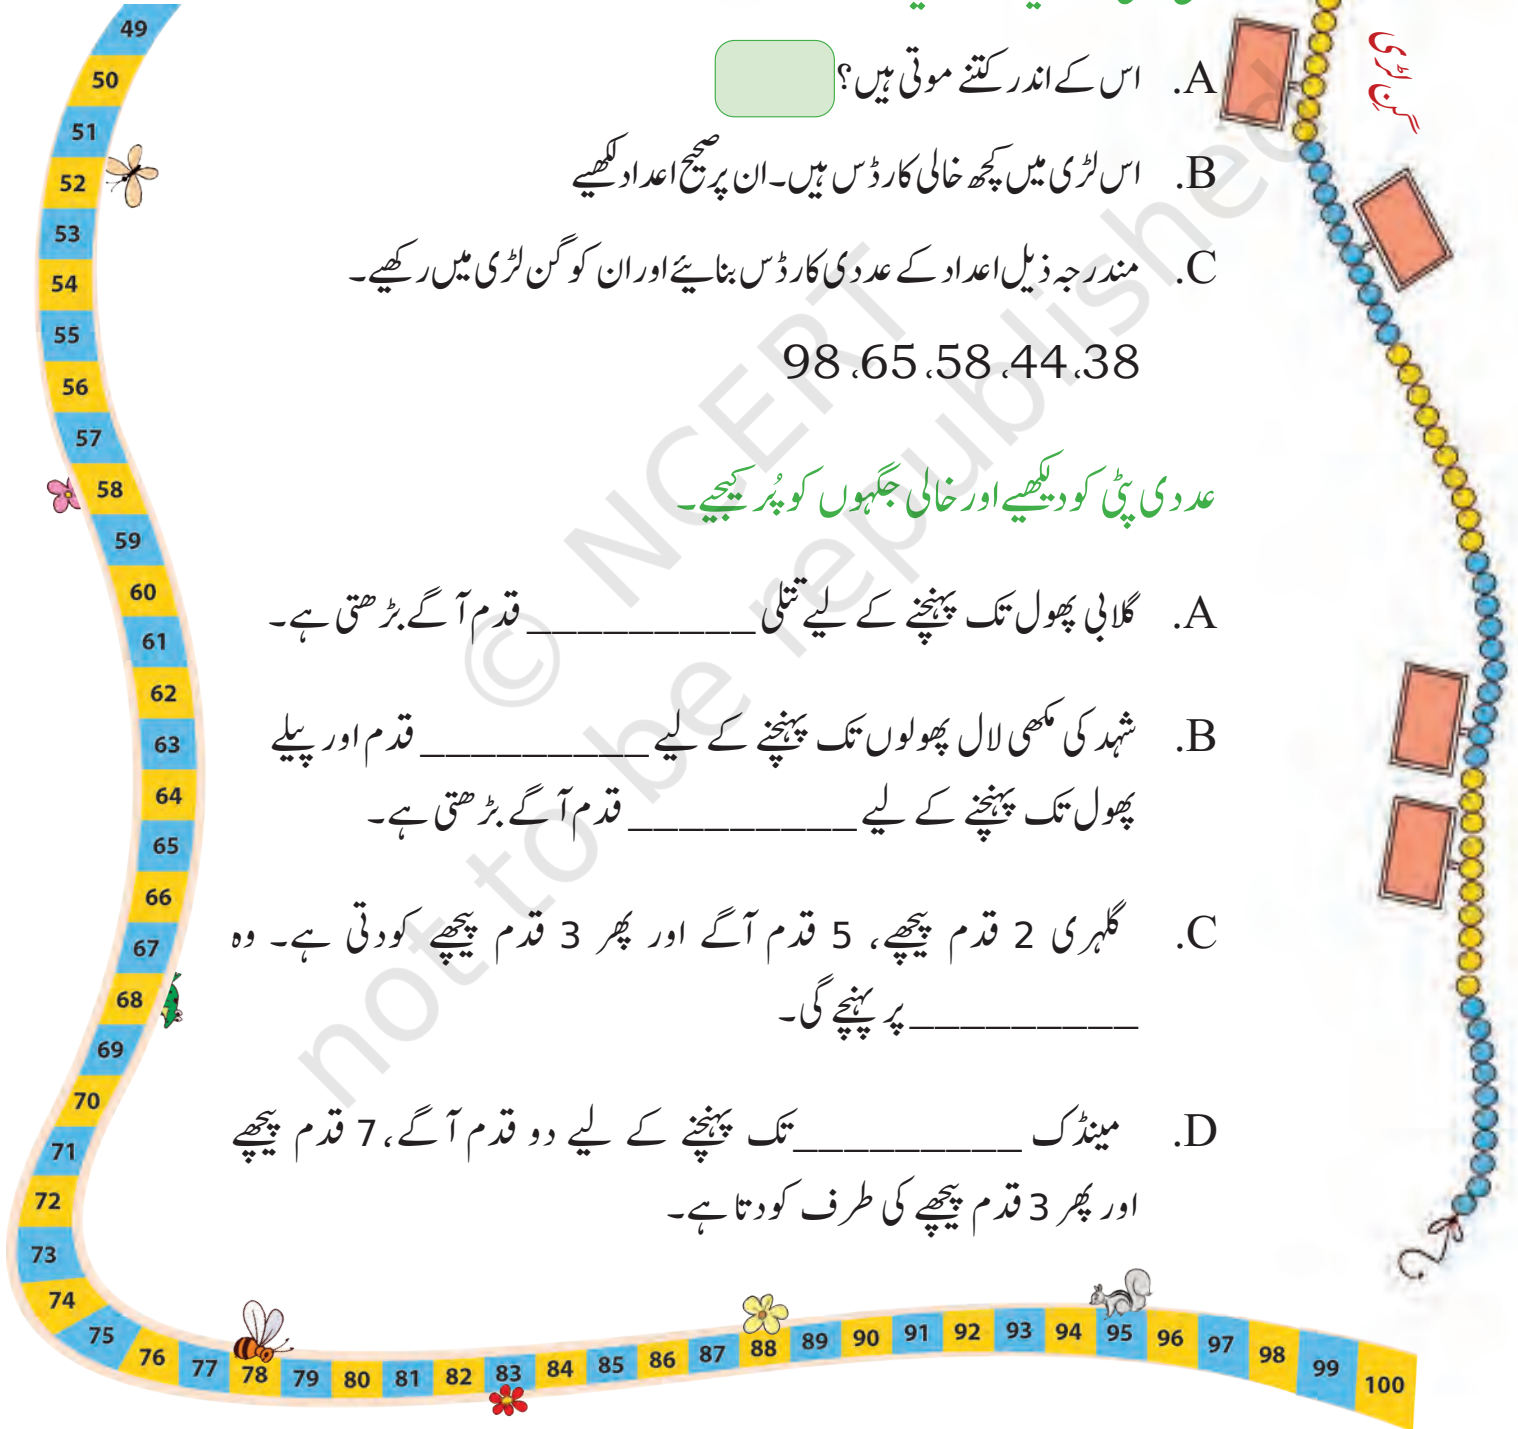 گِن لڑی
A. اس کے اندر کتنے موتی ہیں؟
B. اس لڑی میں کچھ خالی کارڈس ہیں۔ ان پر صحیح اعداد لکھیے
C. مندرجہ ذیل اعداد کے عددی کارڈس بنایئے اور ان کو گن لڑی میں رکھیے۔
38، 44، 58، 65، 98
عددی پٹی کو دیکھیے اور خالی جگہوں کو پُر کیجیے۔
A. گلابی پھول تک پہنچنے کے لیے تتلی _________ قدم آگے بڑھتی ہے۔
B. شہد کی مکھی لال پھولوں تک پہنچنے کے لیے _________ قدم اور پیلے
پھول تک پہنچنے کے لیے _________ قدم آگے بڑھتی ہے۔
C. گلہری 2 قدم پیچھے، 5 قدم آگے اور پھر 3 قدم پیچھے کودتی ہے۔ وہ
_________ پر پہنچے گی۔
D. مینڈک _________ تک پہنچنے کے لیے دو قدم آگے، 7 قدم پیچھے
اور پھر 3 قدم پیچھے کی طرف کودتا ہے۔
49
50
51
52
53
54
55
56
57
58
59
60
61
62
63
64
65
66
67
68
69
70
71
72
73
74
75
76
77
78
79
80
81
82
83
84
85
86
87
88
89
90
91
92
93
94
95
96
97
98
99
100
© NCERT
not to be republished